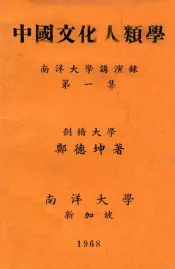 中國文化人類學
南洋大學講演錄
第一集
劍橋大學
鄭德坤著
南洋大學
新加坡
1968